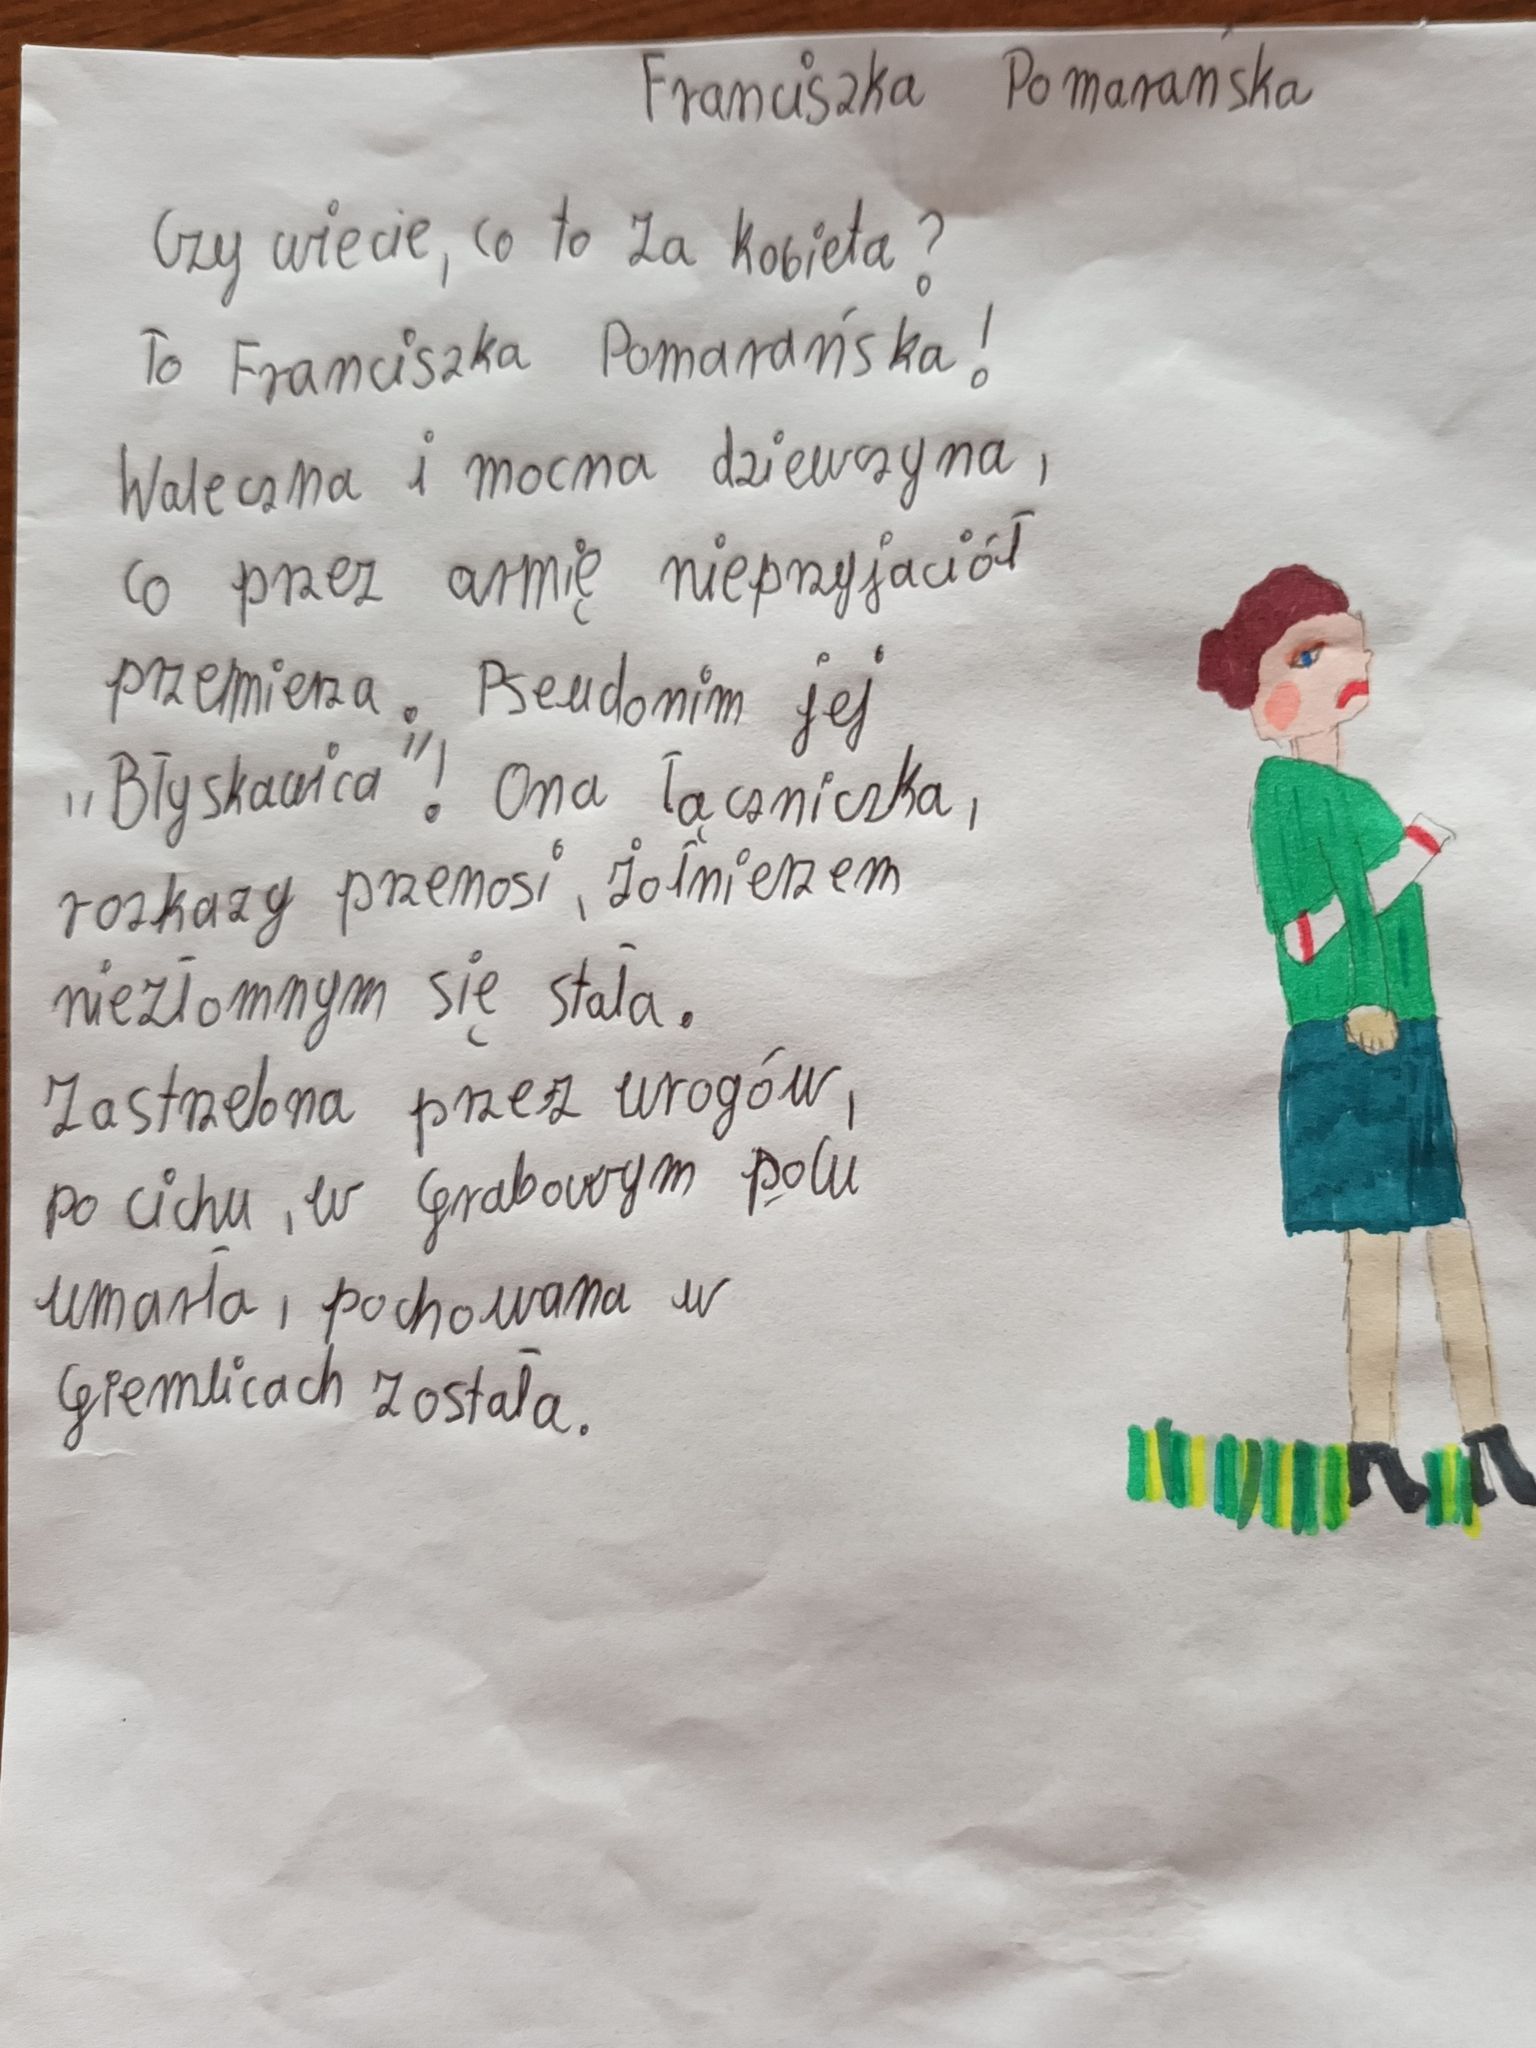 Franciszka Pomarańska
Czy wiecie, co to za kobieta?
To Franciszka Pomarańska!
Waleczna i mocna dziewczyna,
co przez armię nieprzyjaciół
przemierza. Pseudonim jej
"Błyskawica"! Ona łączniczka,
rozkazy przenosi, żołnierzem
niezłomnym się stała.
Zastrzelona przez wrogów,
po cichu, w Grabowym polu
umarła, pochowana w
Giemlicach została.